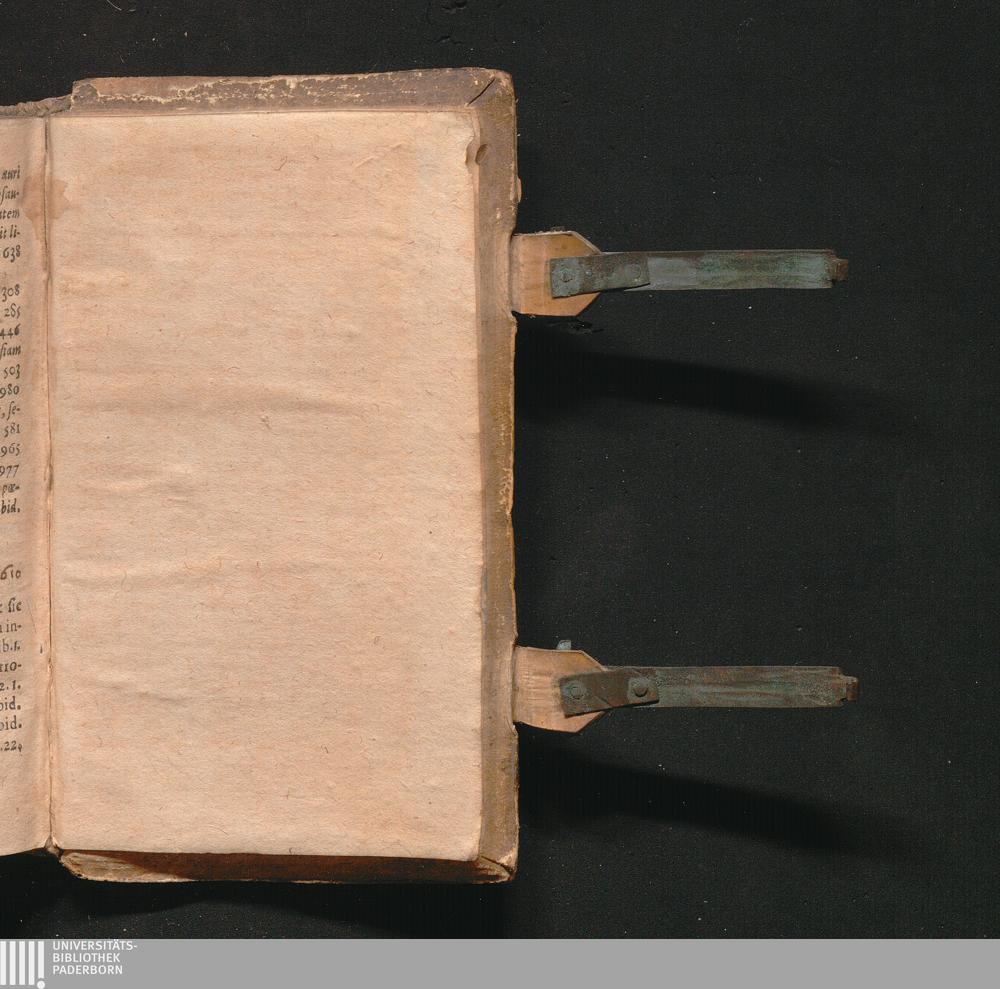 auri
ſau-
utem
it li-
638
308
285
446
ſiam
503
980
, ſe-
581
965
977
pæ-
bid.
610
ſic
in-
b.1.
tio-
2.1.
bid.
bid.
UNIVERSITÄTS-
BIBLIOTHEK
PADERBORN